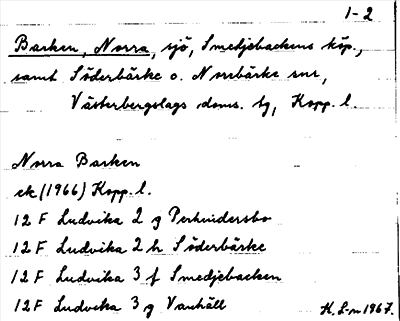 1-2
Barken, Norra, sjö, Smedjebackens köp.,
samt Söderbärke o. Norrbärke snr,
Västerbergslags doms. tg, Kopp. l.
Norra Barken
ek (1966) Kopp. l.
12 F Ludvika 2 g Perhindersbo
12 F Ludvika 2 h Söderbärke
12 F Ludvika 3 f Smedjebacken
12 F Ludvika 3 g Vanhäll
K. L-n 1967.